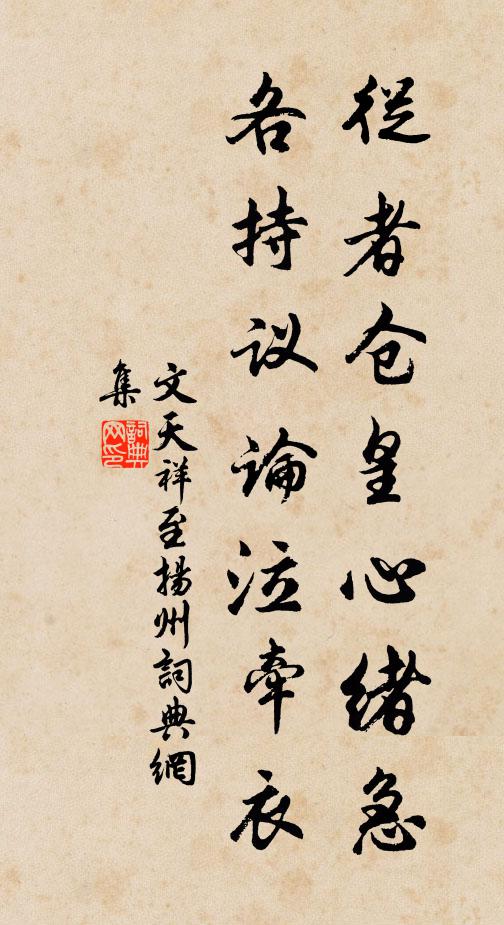 從者仓皇心绪急
各持议論泣牽衣
文天祥至揚州詞典網
集
詞典
网印